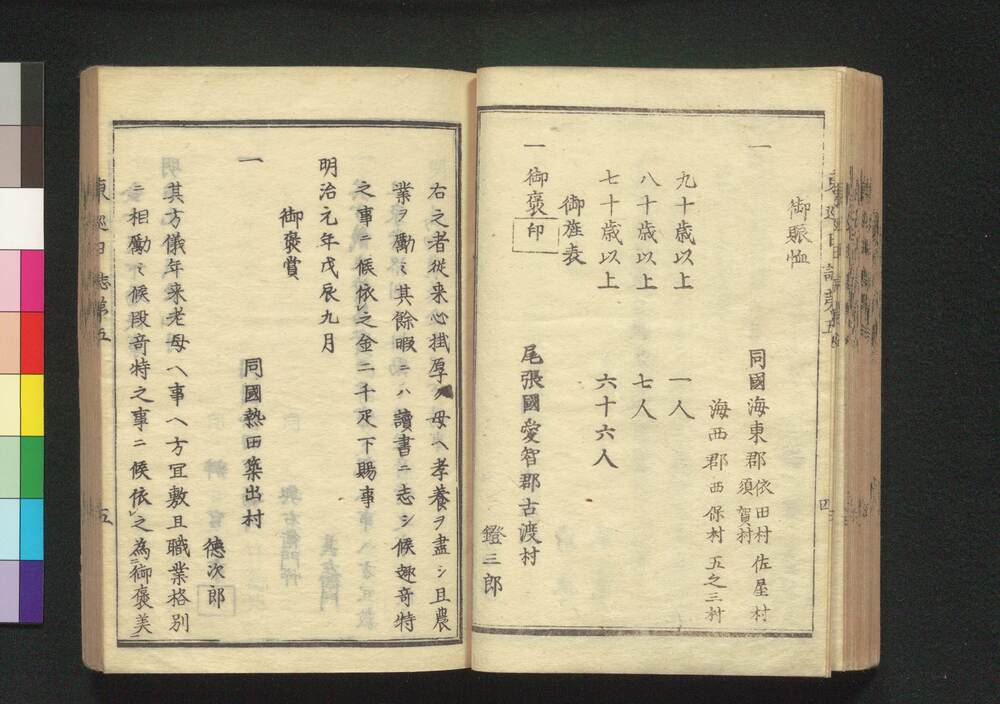 一
御賑恤
同國海東郡依田村 佐屋村
須賀村
海西郡西保村 五之三村
九十歳以上 一人
八十歳以上 七人
七十歳以上 六十六人
御旌表
一 御褒印
尾張國愛智郡古渡村
鐙三郎
四
右之者從来心掛厚ク母ヘ孝養ヲ盡シ且農
業ヲ勵ミ其餘暇ニハ讀書ニ志シ候趣竒特
之事ニ候依之金二千疋下賜事
明治元年戊辰九月
御褒賞
一
同國熱田築出村
徳次郎
其方儀年来老母ヘ事ヘ方宜敷且職業格別
ニ相勵ミ候段竒特之事ニ候依之為御褒美
東巡日誌第五
五